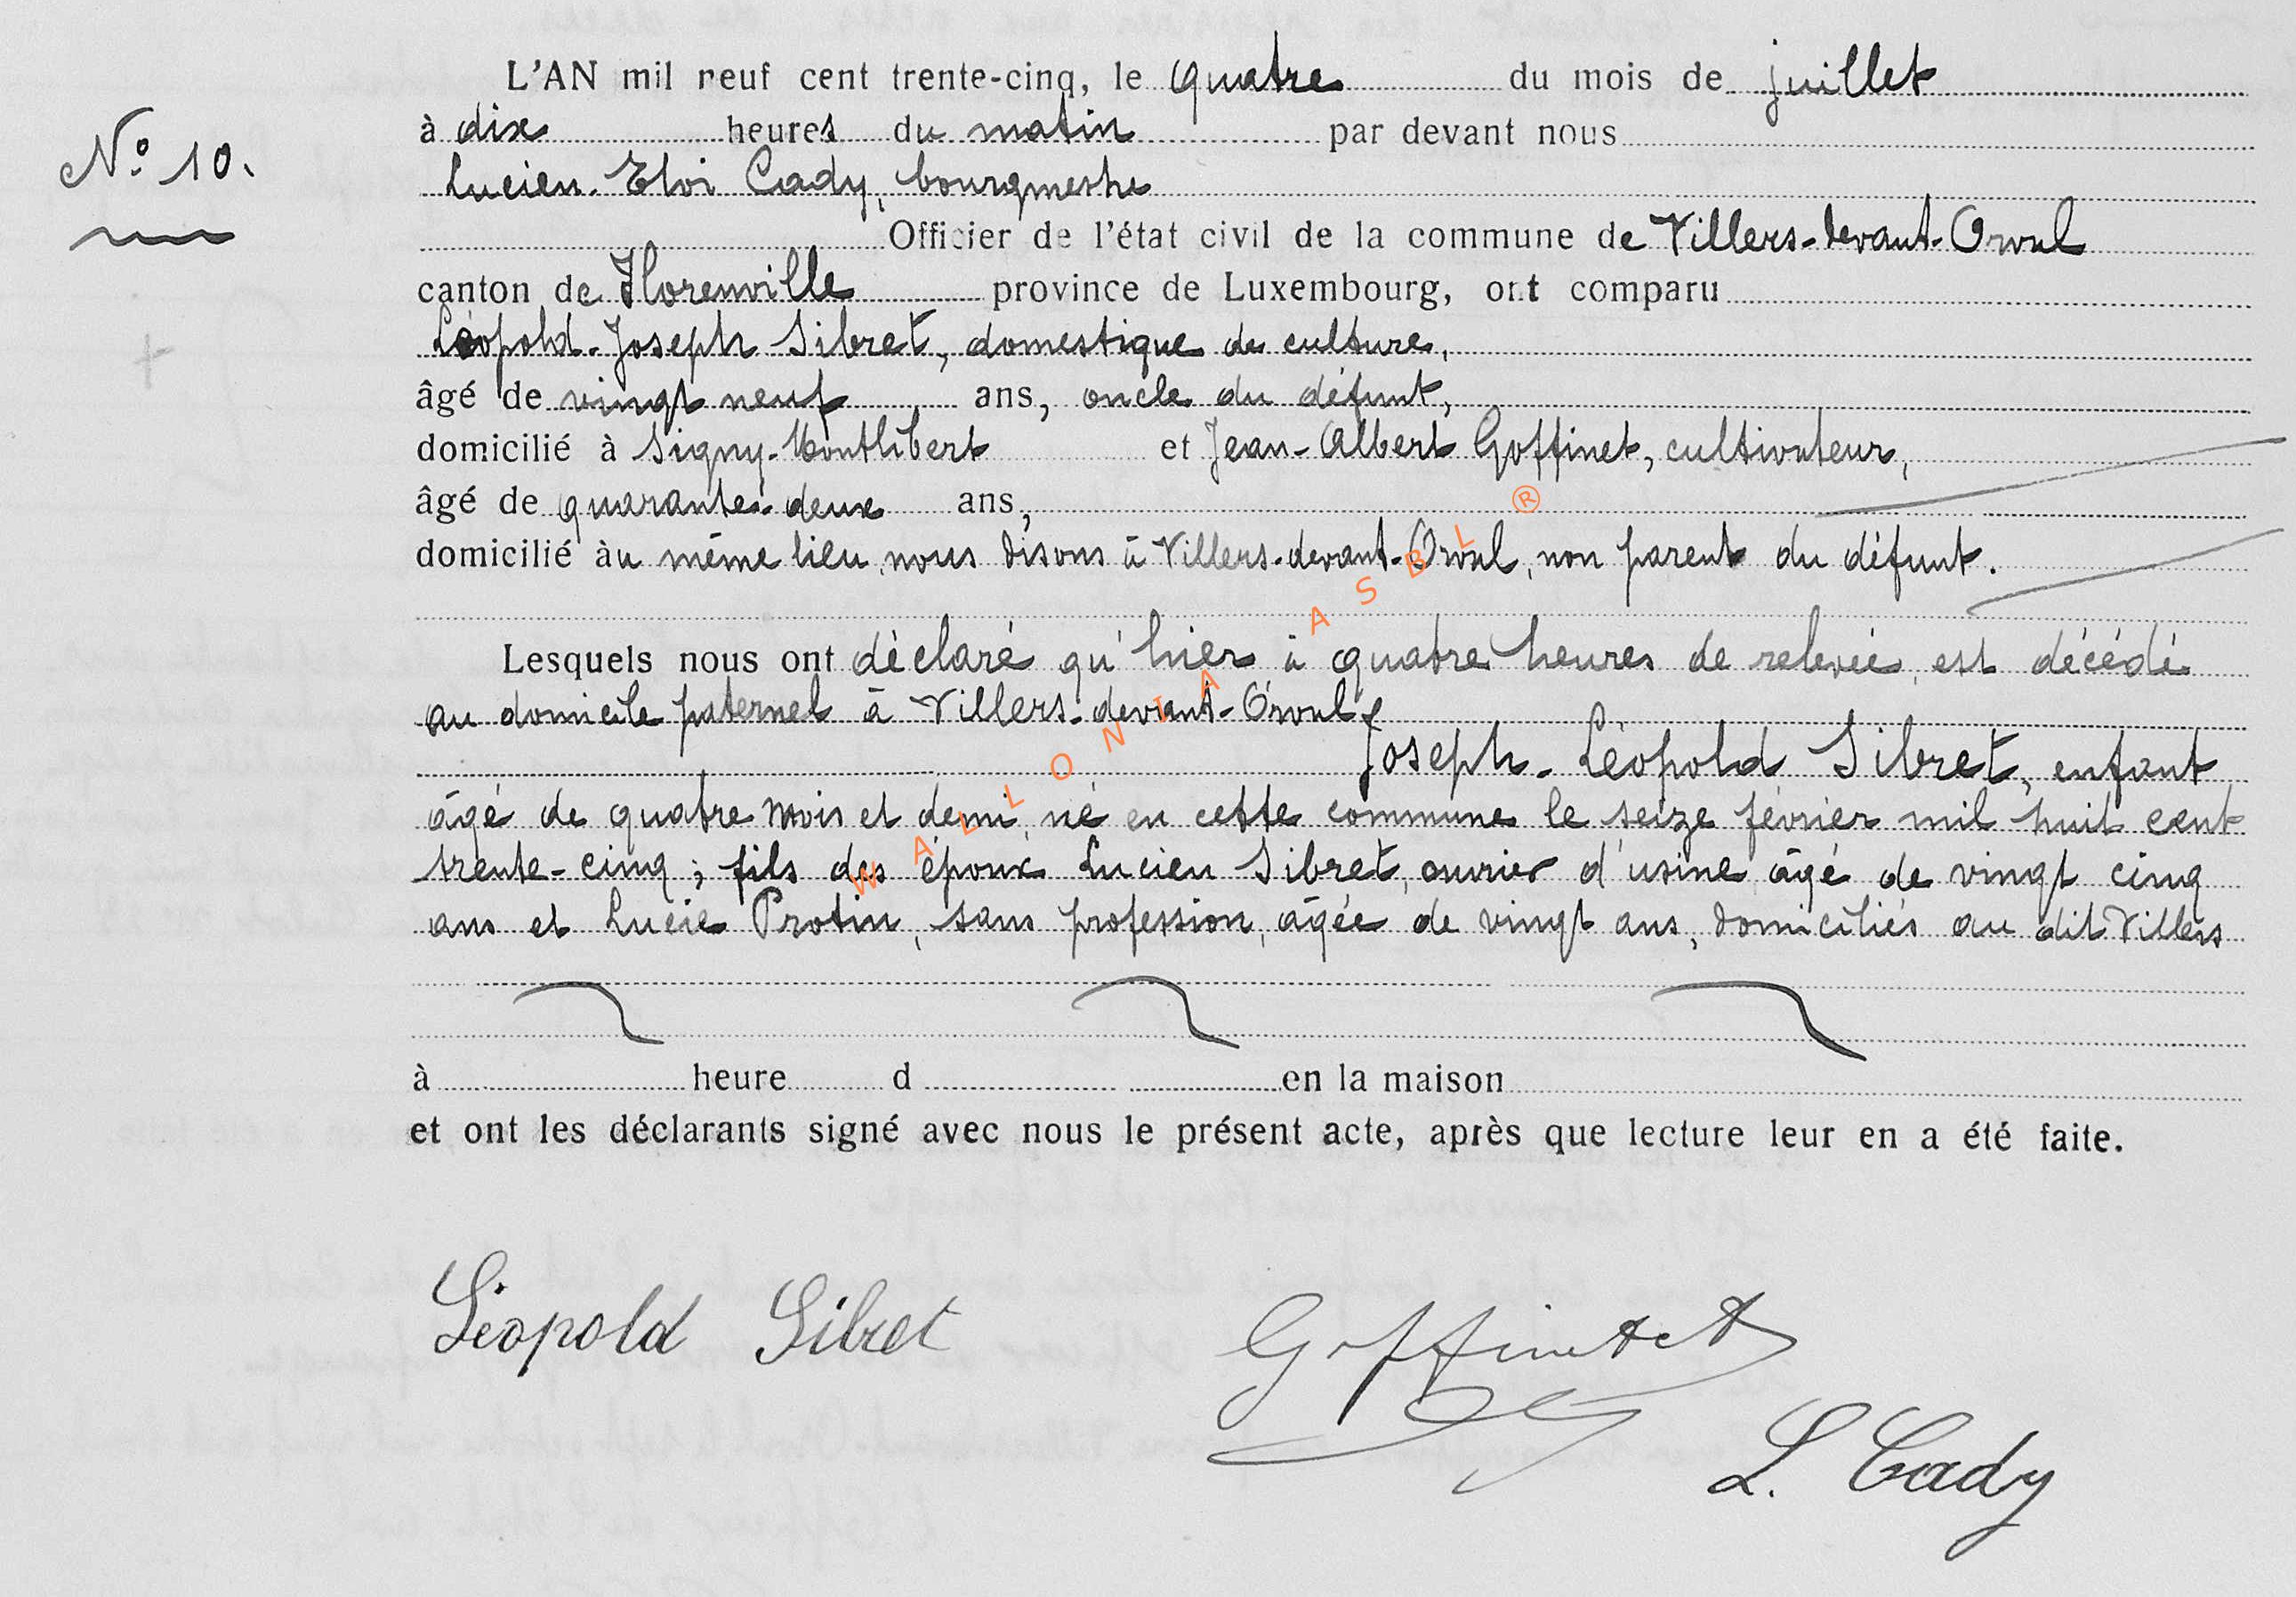 L'AN mil neuf cent trente-cinq, le quatre du mois de juillet
à dix heures du matin par devant nous
N° 10.
Lucien-Eloi Cady, bourgmestre
Officier de l'état civil de la commune de Villers-devant-Orval
canton de Florenville province de Luxembourg, ont comparu
Léopold-Joseph Sibret, domestique de culture,
âgé de vingt neuf ans, oncle du défunt,
domicilié à Signy-Montlibert et Jean-Albert Goffinet, cultivateur,
âgé de quarante-deux ans,
domicilié au même lieu, nous disons à Villers-devant-Orval, non parent du défunt.
Lesquels nous ont déclaré qu'hier à quatre heures de relevée, est décédé
au domicile paternel à Villers-devant-Orval,
Joseph-Léopold Sibret, enfant
âgé de quatre mois et demi, né en cette commune le seize février mil huit cent
trente-cinq; fils des époux Lucien Sibret, ouvrier d'usine âgé de vingt cinq
ans et Lucie Protin, sans profession, âgée de vingt ans, domiciliés au dit Villers
à heure d en la maison
et ont les déclarants signé avec nous le présent acte, après que lecture leur en a été faite.
Léopold Sibret
Goffinet
L. Cady
WALLONIA ASBL ®